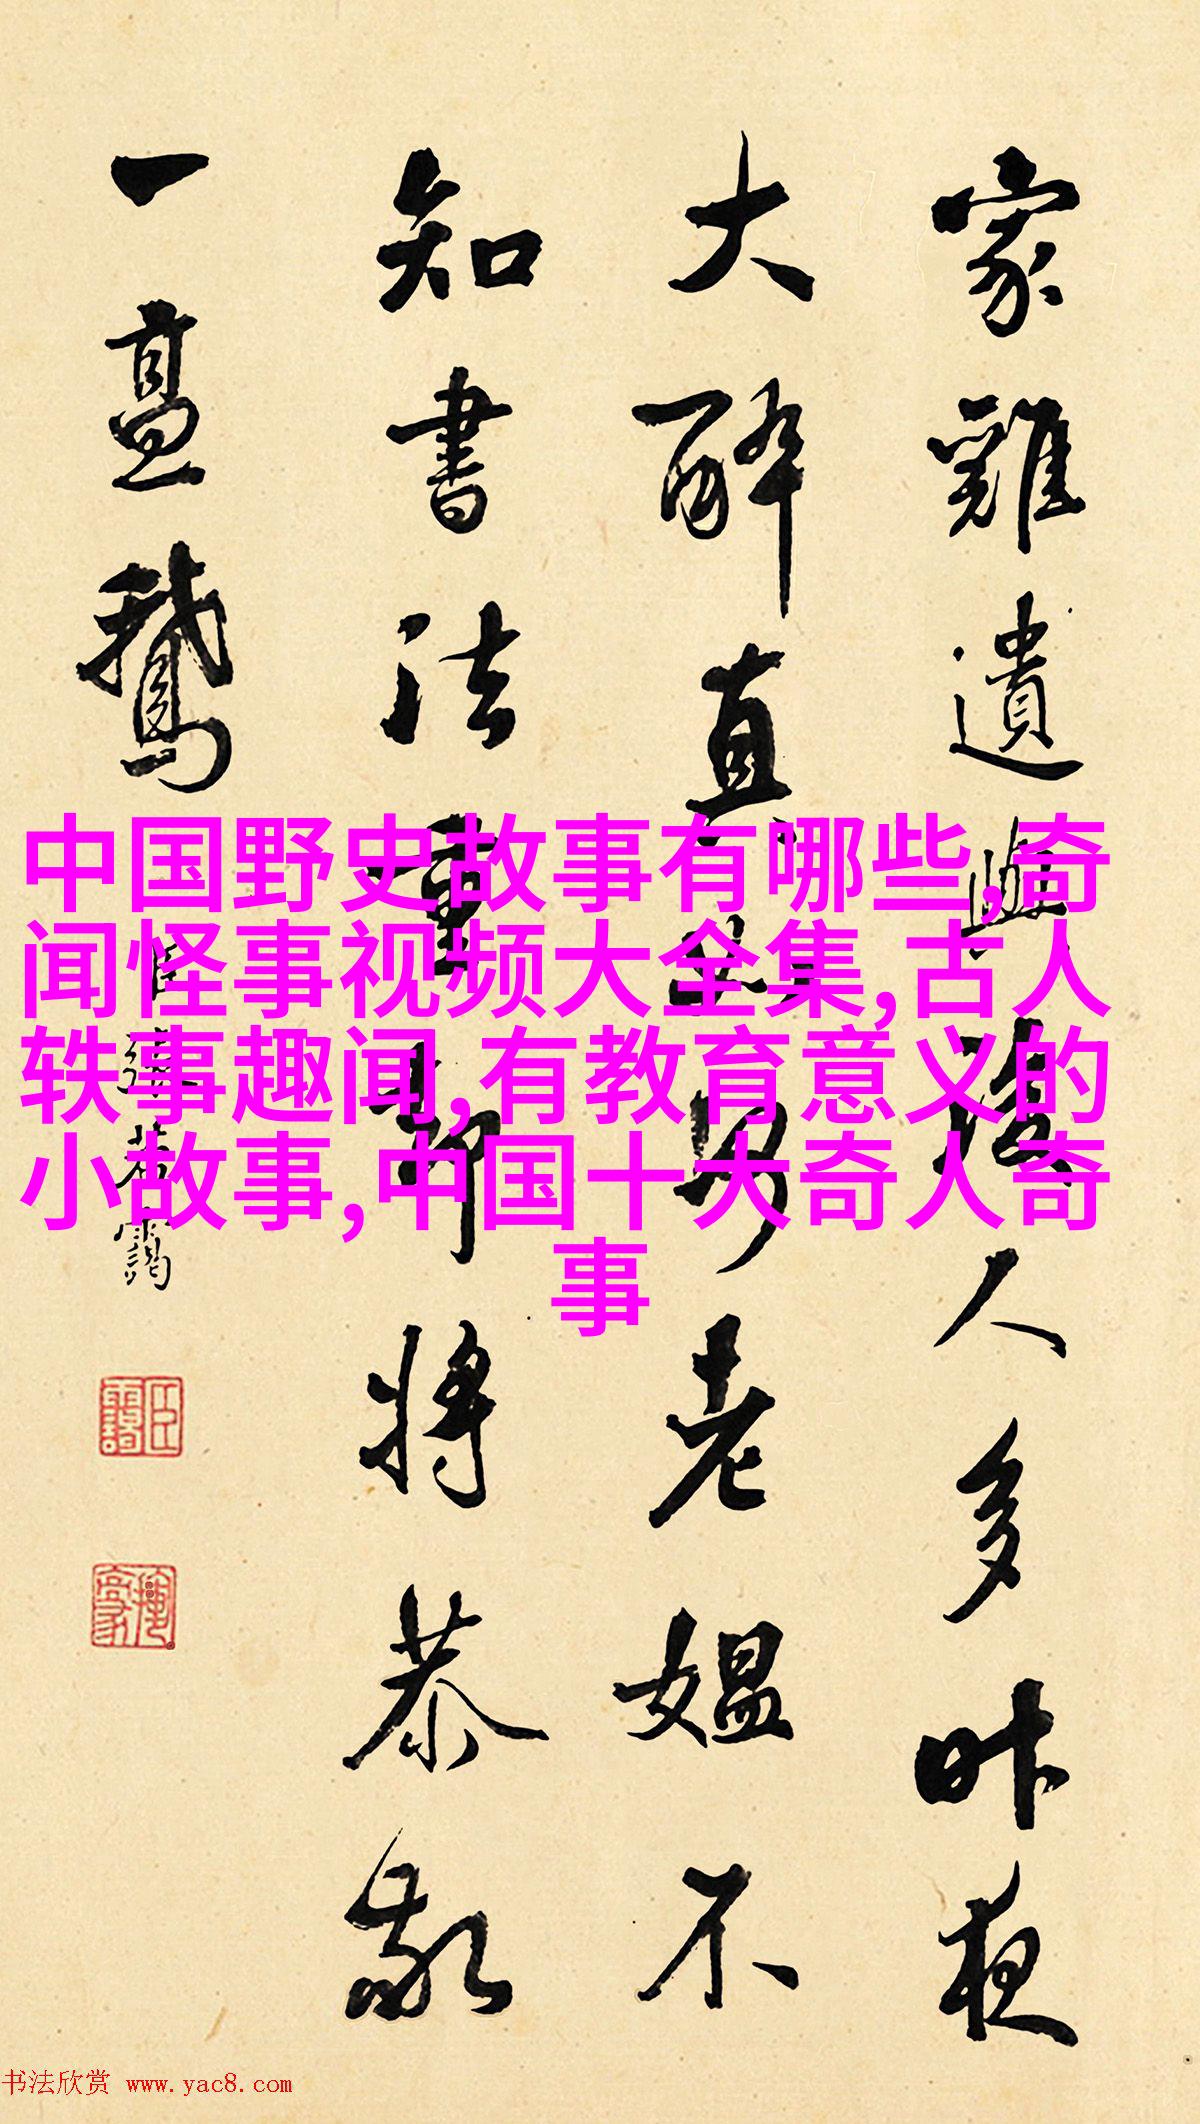 家雞遺後人多昨夜
大醉直老媪不
知書法重將恭敬
一鵝
臣張若靄
中国野史故事有哪些,奇
闻怪事视频大全集,古人
轶事趣闻,有教育意义的
小故事,中国十大奇人奇
事
书法欣赏 www.yac8.com